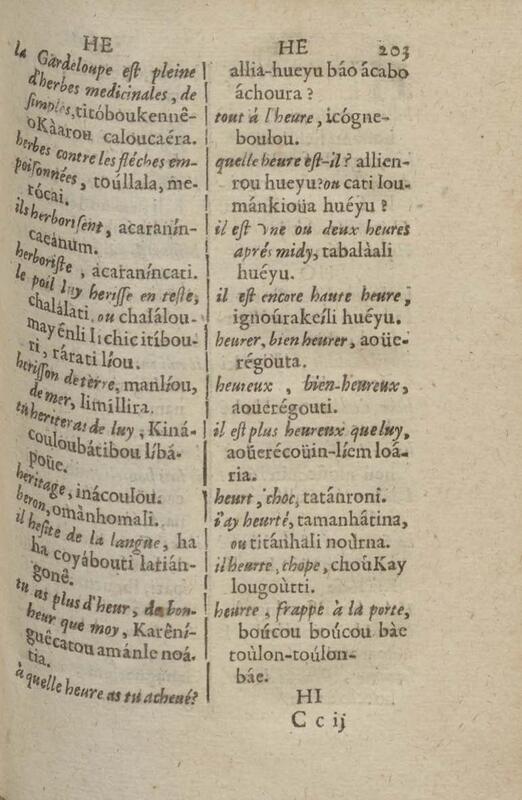 HE
la Gardeloupe est pleine
d'herbes medicinales, de
simples, titóboukennê-
oKàarou caloucaéra.
herbes contre les fléches em-
poisonnées, toúllala, me-
rócai.
ils herborisent, acaranín-
cacánum.
herboriste, àcaranínçati.
le poil luy herisse en teste,
chalálati. ou chalálou-
mayénli Iichic itíbou-
ri, rárati líou.
herisson de terre, manlíou,
de mer, limillira.
tu heriteras de luy, Kiná-
couloubátibou líbá-
poüe.
heritage, inácoulou.
heron, omànhomali.
il hesite de la langue, ha
ha coyábouti latián-
gonê.
tu as plus d'heur, de bon-
heur que moy, Karêní-
guêcatou amánle noá-
tia.
à quelle heure as tu acheué?
HE 203
allia-hueyu báo ácabo
áchoura ?
tout à l'heure, icógne-
boulou.
quelle heure est-il? allien-
rou hueyu? ou cati lou-
mánkioüa huéyu ?
il est vne ou deux heures
aprés midy, tabalàali
huéyu.
il est encore haute heure,
ignoúrakeíli huéyu.
heurer, bien heurer, aoüe-
régouta.
heureux , bien-heureux,
aouerégouti.
il est plus heureux que luy,
aoüerécoüin-líem loá-
ria.
heurt, choc, tatánroni.
i'ay heurté, tamanhátina,
ou titánhali noùrna.
il heurte, chope, choûKay
lougoùtti.
heurte, frappe à la porte,
boúcou boúcou bàe
toùlon-toúlon-
báe.
HI
C c ij